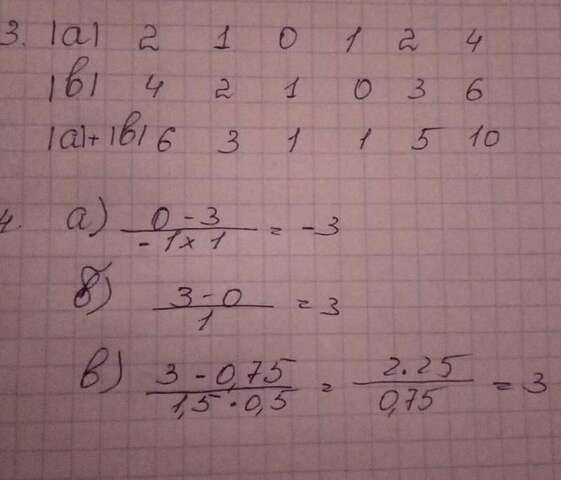 3. |a| 2 1 0 1 2 4
|b| 4 2 1 0 3 6
|a|+|b| 6 3 1 1 5 10
4. а) 0 - 3 / - 1 × 1 = -3
б) 3 - 0 / 1 = 3
в) 3 - 0,75 / 1,5 · 0,5 = 2.25 / 0,75 = 3